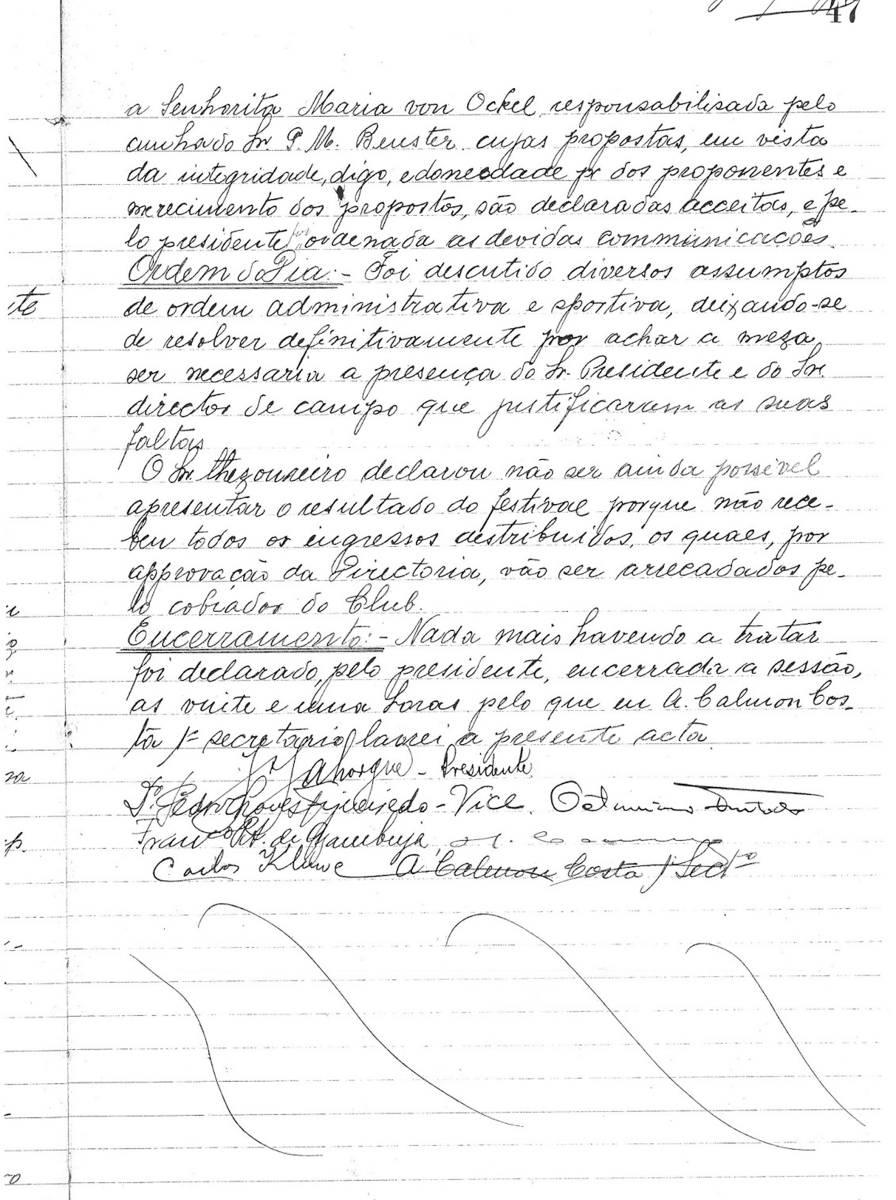 47
a Senhorita Maria von Ockel responsabilisada pelo
cunhado Sr. P. M. Benster, cujas propostas, em vista
da integridade, digo, edoneidade dos proponentes e
merecimento dos propostos, são declaradas acceitas, e pe-
lo presidente foi ordenada as devidas communicações.
Ordem do Dia:- Foi discutido diversos assumptos
de ordem administrativa e sportiva, deixando-se
de resolver definitivamente por achar a meza
ser necessaria a presença do Sr. Presidente e do Sr.
director de campo que justificaram as suas
faltas
O Sr. thezoureiro declarou não ser ainda possivel
apresentar o resultado do festival porque não rece-
beu todos os ingressos destribuidos, os quaes, por
approvação da Directoria, vão ser arrecadados pe-
lo cobrador do Club.
Encerramento:- Nada mais havendo a tratar
foi declarado, pelo presidente, encerrada a sessão,
as vinte e uma horas pelo que eu A. Calmon Cos-
ta 1º secretario lavrei a presente acta
- Presidente
Dr. Pedro Figueiredo - Vice.
de Azambuja
Carlos Kluwe A Calmon Costa 1º Sectº